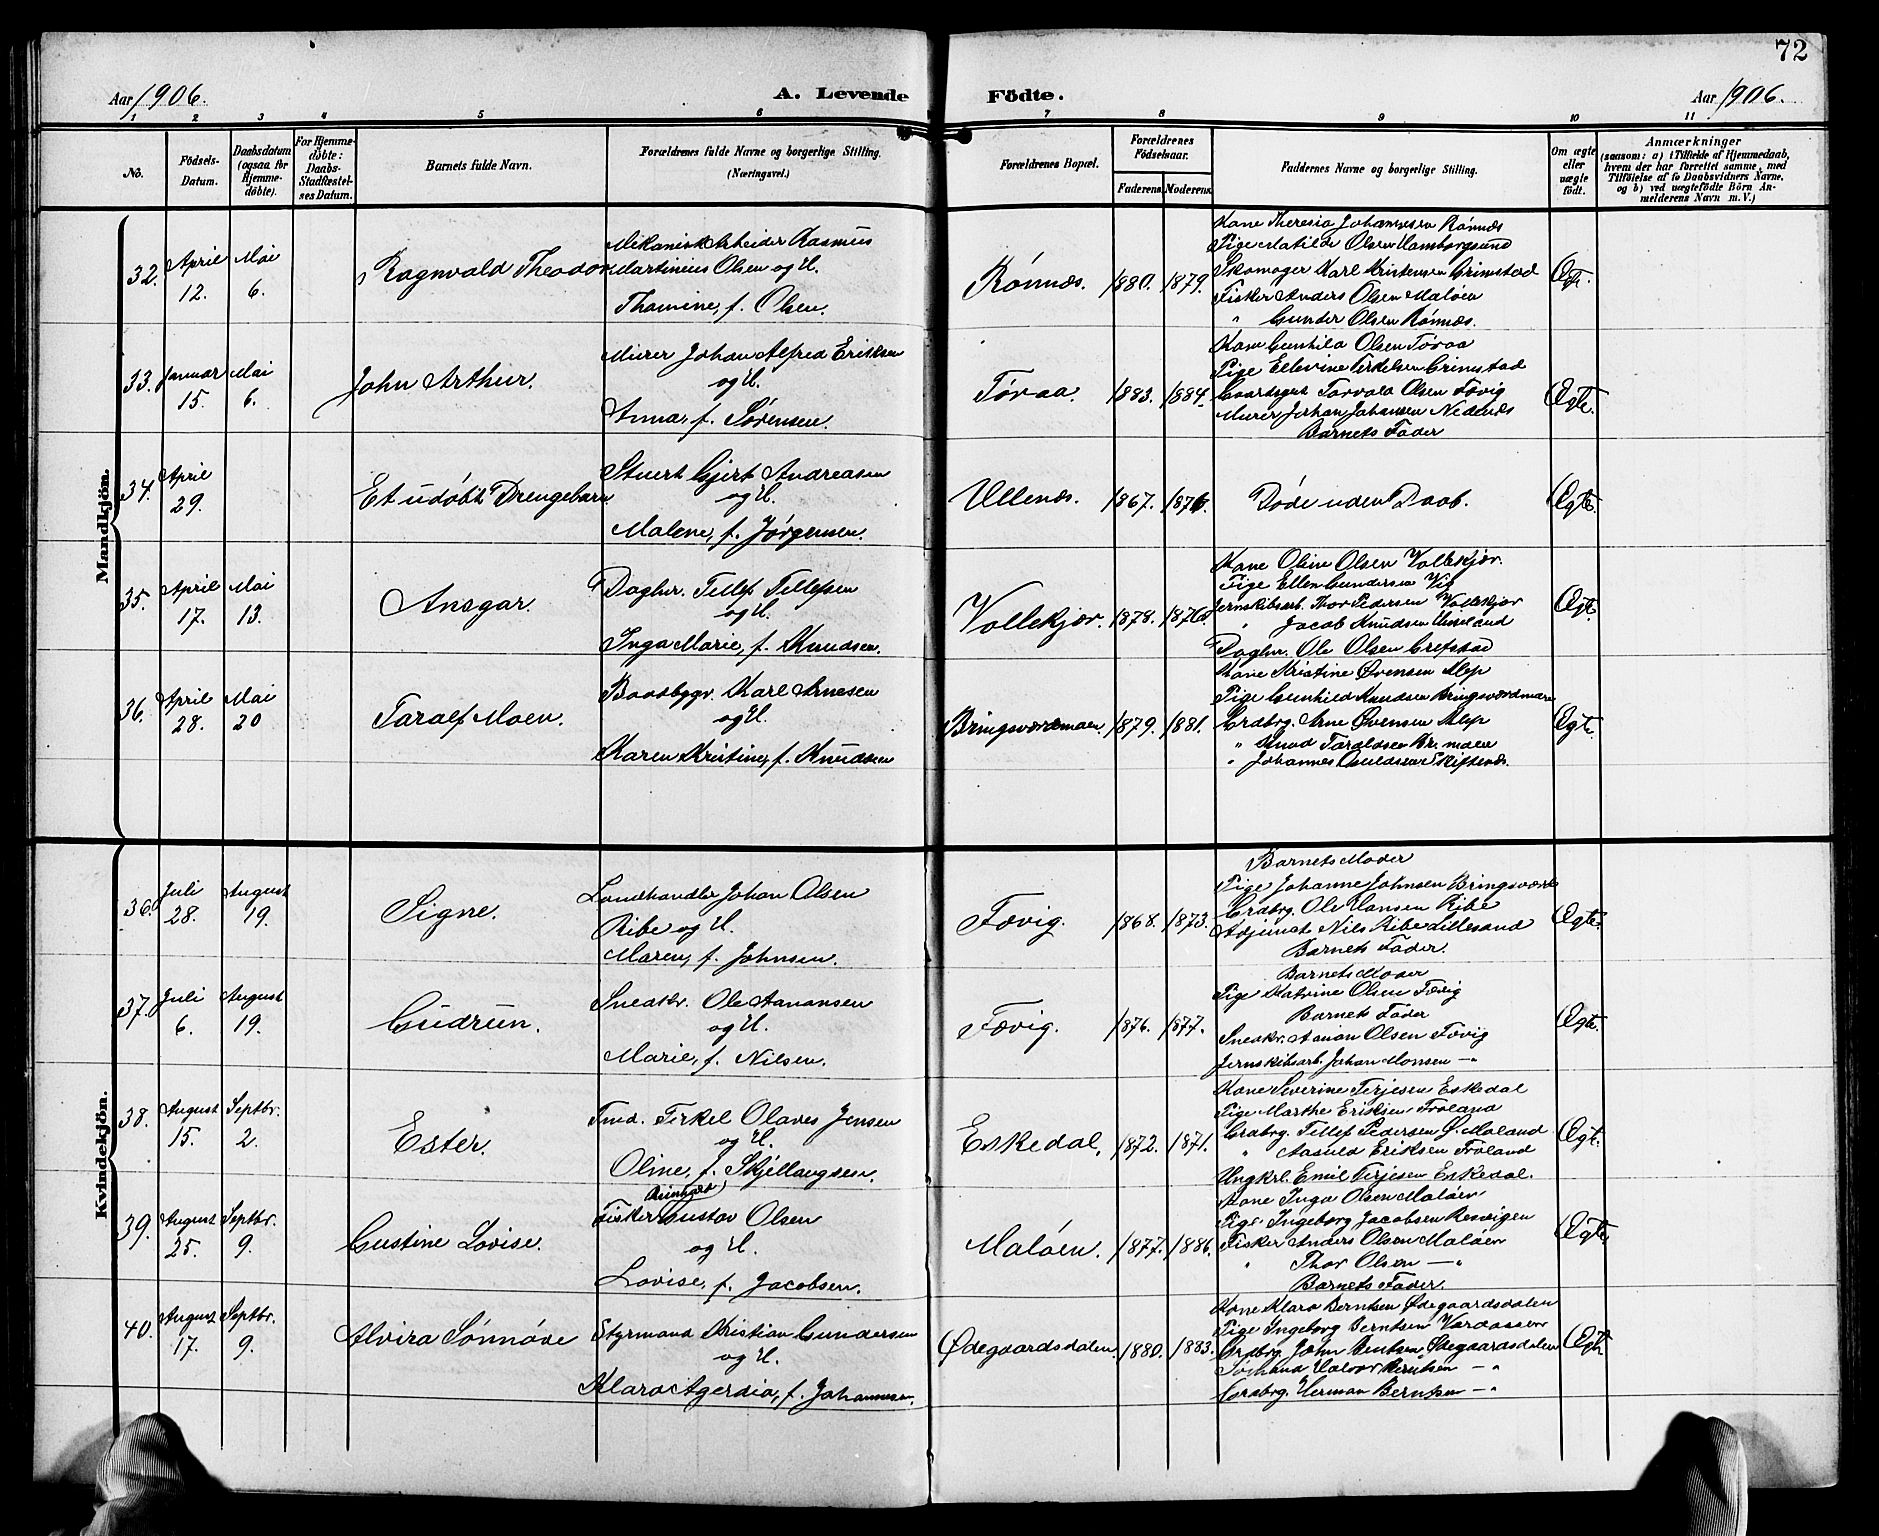 72
Aar 1906.
A. Levende Födte.
Aar 1906.
1 2 3 4 5 6 7 8 9 10 11
No.
Födsels-Datum.
Daabsdatum (ogsaa for Hjemmedöbte).
For Hjemmedöbte: Daabs-Stadfæstelses Datum.
Barnets fulde Navn.
Forældrenes fulde Navne og borgerlige Stilling. (Næringsvei.)
Forældrenes Bopæl.
Forældrenes Födselsaar.
Faderens. Moderens.
Faddernes Navne og borgerlige Stilling.
Om ægte eller uægte födt.
Anmærkninger
(saasom: a) i Tilfælde af Hjemmedaab, hvem der har forrettet samme, med Tilföielse af to Daabsvidners Navne, og b) ved uægtefödte Börn Anmelderens Navn m. V.)
Mandkjön.
32. April 12. Mai 6.
Ragnvald Theodor
Mekanisk Arbeider Rasmus
Martinius Olsen og H.
Thomine, f. Olsen.
Rönnes. 1880. 1879.
Kone Theresia Johannessen Rönnes
Pige Matilde Olsen Hamborgsund
Skomager Karl Kristensen Grimstad
Fisker Anders Olsen Maløen
" Gunder Olsen Rönnes.
Egte.
33. Januar 15. Mai 6.
John Arthur.
Murer Johan Alfred Eriksen
og H.
Anna, f. Sørensen.
Tøraa. 1883. 1884.
Kone Gunhild Olsen Tøraa
Pige Ellevine Terkelsen Grimstad
Gaardsgut Torvald Olsen Fævig
Murer Johan Johansen Nedenes
Barnets Fader
Egte.
34. April 29.
Et udöbt Drengebarn
Stuert Gjert Andreasen
og H.
Malene, f. Jørgensen.
Ullenes. 1867. 1876.
Döde uden Daab.
Egte.
35. April 17. Mai 13.
Ansgar.
Daglnr. Tellef Tellefsen
og H.
Inga Marie, f. Knudsen.
Vollekjær. 1878. 1876.
Kone Oline Olsen Vollekjær.
Pige Ellen Gundersen Vig
Jernskibsarb. Thor Pedersen Vollekjær
" Jacob Knudsen
Daglnr. Ole Olsen Grefstad
Egte.
36. April 28. Mai 20
Taralf Moen.
Baadbyggr. Karl Arnesen
og H.
Karen Kristine, f. Knudsen
Bringsværdmoen 1879. 1881.
Kone Kristine Evensen Alep
Pige Gunhild Knudsen Bringsværdmoen
Grdbrg. Arne Evensen Alep
" Knud Taraldsen Br. moen
" Johannes Skiftenes.
Egte.
Kvindekjön.
36. Juli 28. August 19.
Signe.
Landhandler Johan Olsen
Ribe og H.
Maren, f. Johnsen.
Fævig. 1868. 1873.
Barnets Moder
Pige Johanne Johnsen Bringsværd
Grdbrg. Ole Hansen Ribe
Adjunct Nils Ribe Lillesand
Barnets Fader.
Egte.
37. Juli 6. August 19.
Gudrun.
Snedkr. Ole Aanonsen
og H.
Marie, f. Nilsen.
Fævig. 1876. 1877.
Barnets Moder
Pige Katrine Olsen Fævig
Barnets Fader
Snedkr. Aanon Olsen Fævig
Jernskibsarb. Johan Monsen — "
Egte.
38. August 15. Septbr. 2.
Ester.
Tmd. Terkel Olaves Jensen
og H.
Oline, f. Skjellaugsen.
Eskedal. 1872. 1871.
Kone Severine Terjesen Eskedal
Pige Marthe Eriksen Froland
Grdbrg. Tellef Pedersen Ö. Moland
" Aasuld Eriksen Froland
Ungkrl. Emil Terjesen Eskedal.
Egte.
39. August 25. Septbr. 9.
Gustine Lovise.
Reinhard
Fisker Gustav Olsen
og H.
Lovise, f. Jacobsen.
Maløen. 1877. 1886.
Kone Inga Olsen Maløen
Pige Ingeborg Jacobsen Resvigen
Fisker Anders Olsen Maløen
" Thor Olsen — "
Barnets Fader
Egte.
40. August 17. Septbr. 9.
Alvira Sönnöve
Styrmand Kristian Gundersen
og H.
Klara Agerdia, f. Johannesen.
Ødegaardsdalen. 1880. 1883.
Kone Klara Berntsen Ødegaardsdalen
Pige Ingeborg Berntsen Vardaasen
Grdbrg. John Berntsen Ødegaardsdalen
Sömand Halvor Berntsen — "
Grdbrg. Herman Berntsen — "
Egte